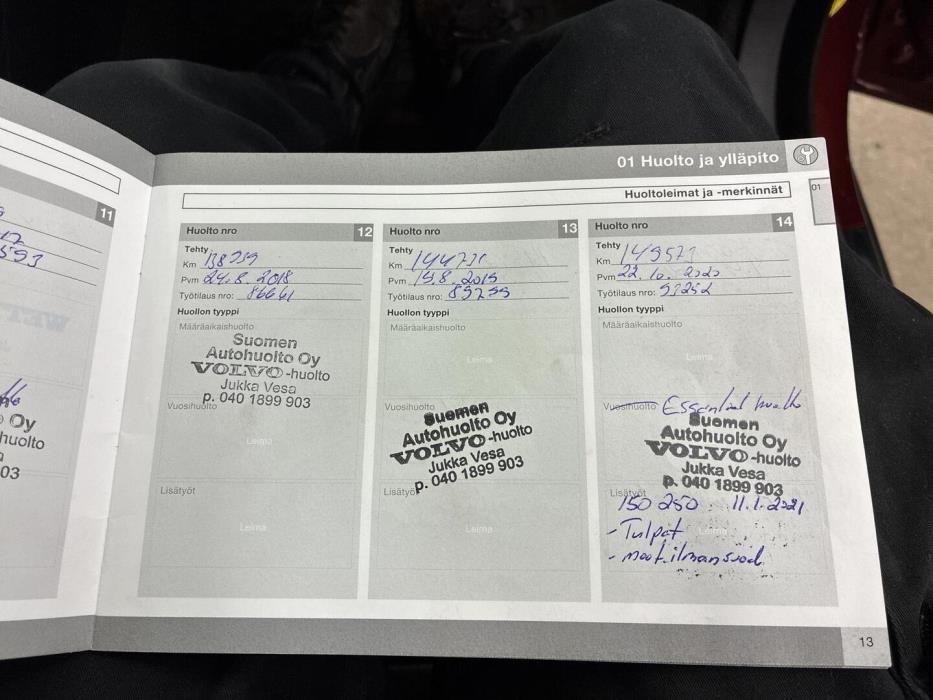 01 Huolto ja ylläpito
Huoltoleimat ja -merkinnät
01
11
593
Oy
huolto
03
Huolto nro 12
Tehty
Km 138959
Pvm 24.8.2018
Työtilaus nro: 86661
Huollon tyyppi
Määräaikaishuolto
Suomen
Autohuolto Oy
VOLVO-huolto
Jukka Vesa
p. 040 1899 903
Vuosihuolto
Leima
Lisätyöt
Leima
Huolto nro 13
Tehty
Km
Pvm 19.8.2019
Työtilaus nro:
Huollon tyyppi
Määräaikaishuolto
Leima
Vuosihuolto
Suomen
Autohuolto Oy
VOLVO-huolto
Jukka Vesa
p. 040 1899 903
Lisätyöt
Leima
Huolto nro 14
Tehty
Km 149571
Pvm 22.10.2020
Työtilaus nro: 93252
Huollon tyyppi
Määräaikaishuolto
Leima
Vuosihuolto Essential huolto
Suomen
Autohuolto Oy
VOLVO-huolto
Jukka Vesa
p. 040 1899 903
Lisätyöt
150 250 11.1.2021
- Tulpat
- moot.ilmansuod.
13